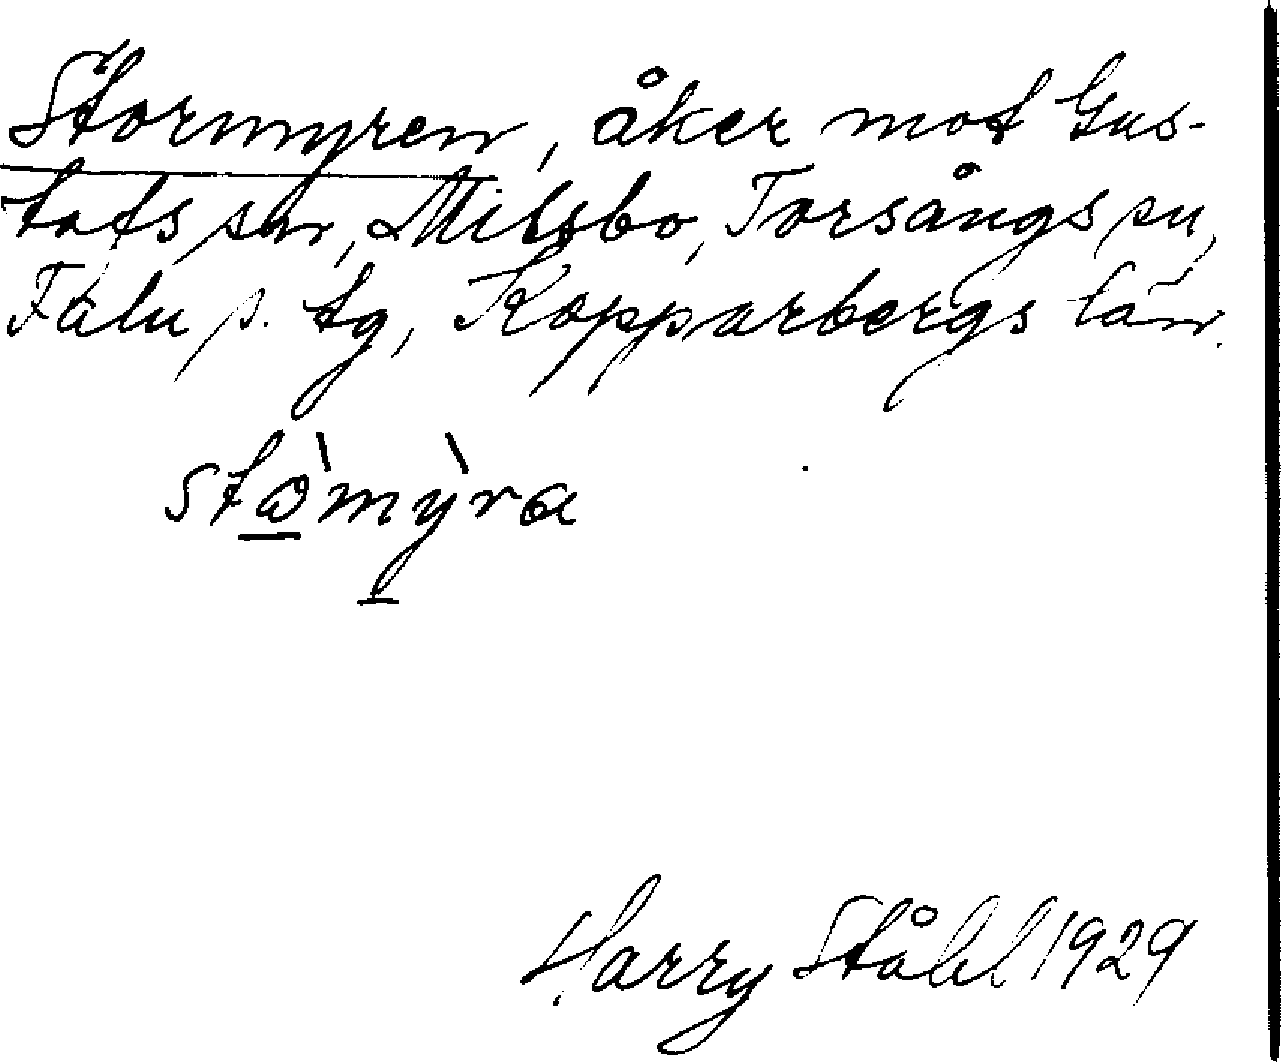 Stormyren, åker mot Gus-
tafs sn, Milsbo, Torsångs sn,
Falu s. tg, Kopparbergs län.
stɷ̀mỳra
Harry Ståhl 1929